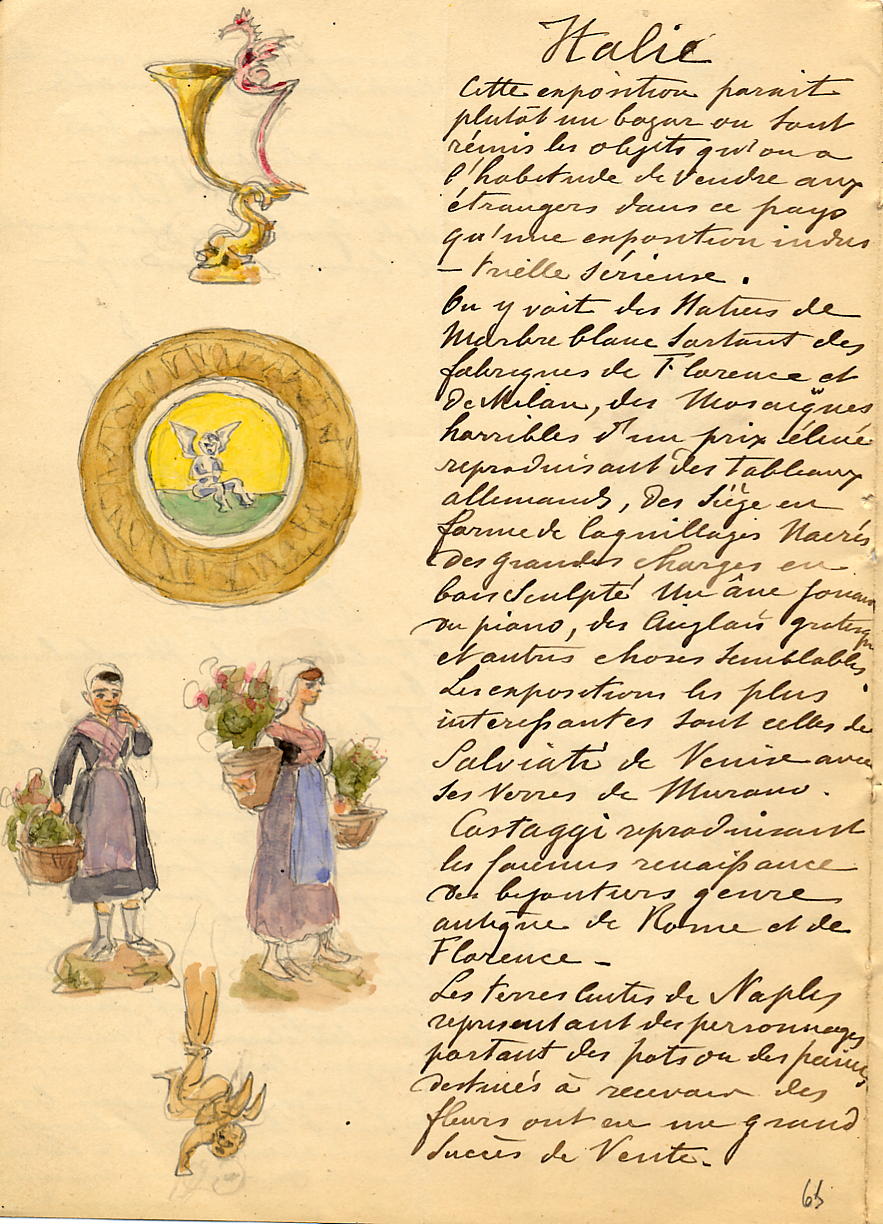 Italie
Cette exposition parait
plutôt un bazar ou sont
réunis les objets qu'on a
l'habitude de vendre aux
étrangers dans ce pays
qu'une exposition indus
- trielle sérieuse.
On y voit des statues de
Marbre blanc sortant des
fabriques de Florence et
de Milan, des Mosaïques
horribles d'un prix élevé
reproduisant des tableaux
allemands, des siège en
forme de coquillages nacrés
des grandes charges en
bois sculpté un âne jouant
du piano, des Anglais grotesques
et autres choses semblables.
Les expositions les plus
interessantes sont celles de
Salviati de Venise avec
ses verres de Murano.
Castaggi reproduisant
les renaissance
des bijoutiers genre
antique de Rome et de
Florence -
Les terres cuites de Naples
représentant des personnages
portant des pots ou des paniers
destinés à recevoir des
fleurs ont eu un grand
succès de Vente.
65